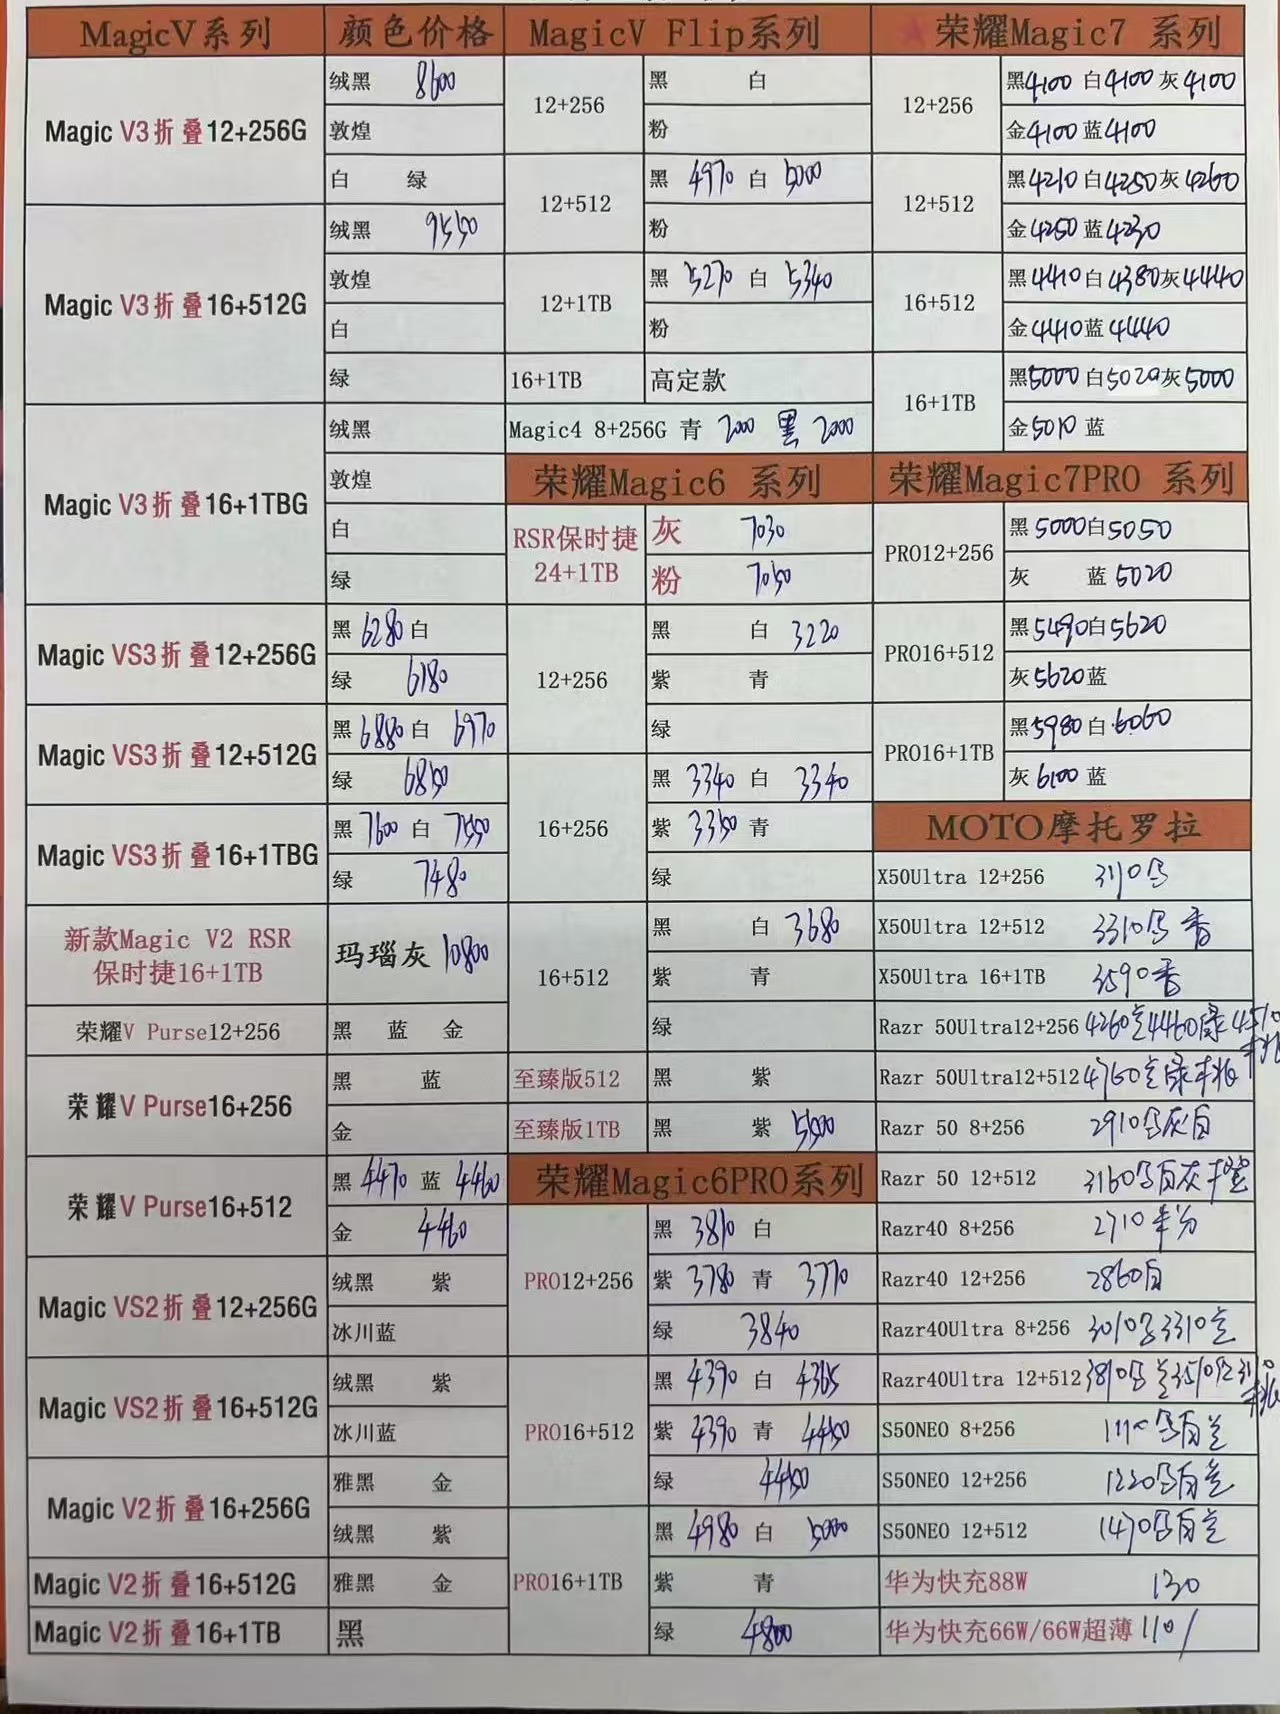 MagicV系列 颜色价格
Magic V3折叠12+256G
绒黑 8600
敦煌
白 绿
Magic V3折叠16+512G
绒黑 9550
敦煌
白
绿
Magic V3折叠16+1TBG
绒黑
敦煌
白
绿
Magic VS3折叠12+256G
黑 6280 白
绿 6180
Magic VS3折叠12+512G
黑 6880 白 6970
绿 6850
Magic VS3折叠16+1TBG
黑 7600 白 7550
绿 7480
新款Magic V2 RSR
保时捷16+1TB
玛瑙灰 10800
荣耀V Purse12+256
黑 蓝 金
荣耀V Purse16+256
黑 蓝
金
荣耀V Purse16+512
黑 4470 蓝 4460
金 4460
Magic VS2折叠12+256G
绒黑 紫
冰川蓝
Magic VS2折叠16+512G
绒黑 紫
冰川蓝
Magic V2折叠16+256G
雅黑 金
绒黑 紫
Magic V2折叠16+512G
雅黑 金
Magic V2折叠16+1TB
黑
MagicV Flip系列
12+256
黑 白
粉
12+512
黑 4970 白 5000
粉
12+1TB
黑 5270 白 5340
粉
16+1TB 高定款
Magic4 8+256G 青 2000 黑 2000
荣耀Magic6 系列
RSR保时捷
24+1TB
灰 7030
粉 7050
12+256
黑 白 3220
紫 青
绿
16+256
黑 3340 白 3340
紫 3350 青
绿
16+512
黑 白 3680
紫 青
绿
至臻版512 黑 紫
至臻版1TB 黑 紫 5500
荣耀Magic6PRO系列
PRO12+256
黑 3810 白
紫 3780 青 3770
绿 3840
PRO16+512
黑 4390 白 4365
紫 4390 青 4450
绿 4450
PRO16+1TB
黑 4980 白 5000
紫 青
绿 4800
★荣耀Magic7 系列
12+256
黑4100 白4100 灰4100
金4100 蓝4100
12+512
黑4210 白4250 灰4260
金4250 蓝4230
16+512
黑4410 白4380 灰4440
金4410 蓝4440
16+1TB
黑5000 白5020 灰5000
金5010 蓝
荣耀Magic7PRO 系列
PRO12+256
黑5000 白5050
灰 蓝5020
PRO16+512
黑5490 白5620
灰5620 蓝
PRO16+1TB
黑5980 白6060
灰6100 蓝
MOTO摩托罗拉
X50Ultra 12+256 3110
X50Ultra 12+512 3310
X50Ultra 16+1TB 3590
Razr 50Ultra12+256 4260 4460绿 4510
Razr 50Ultra12+512 4760 绿
Razr 50 8+256 2910 灰白
Razr 50 12+512 3160 白灰
Razr40 8+256 2710
Razr40 12+256 2860白
Razr40Ultra 8+256 3010 3310
Razr40Ultra 12+512 3810 3510
S50NEO 8+256
S50NEO 12+256 1220 白
S50NEO 12+512 1470 白
华为快充88W 130
华为快充66W/66W超薄 110